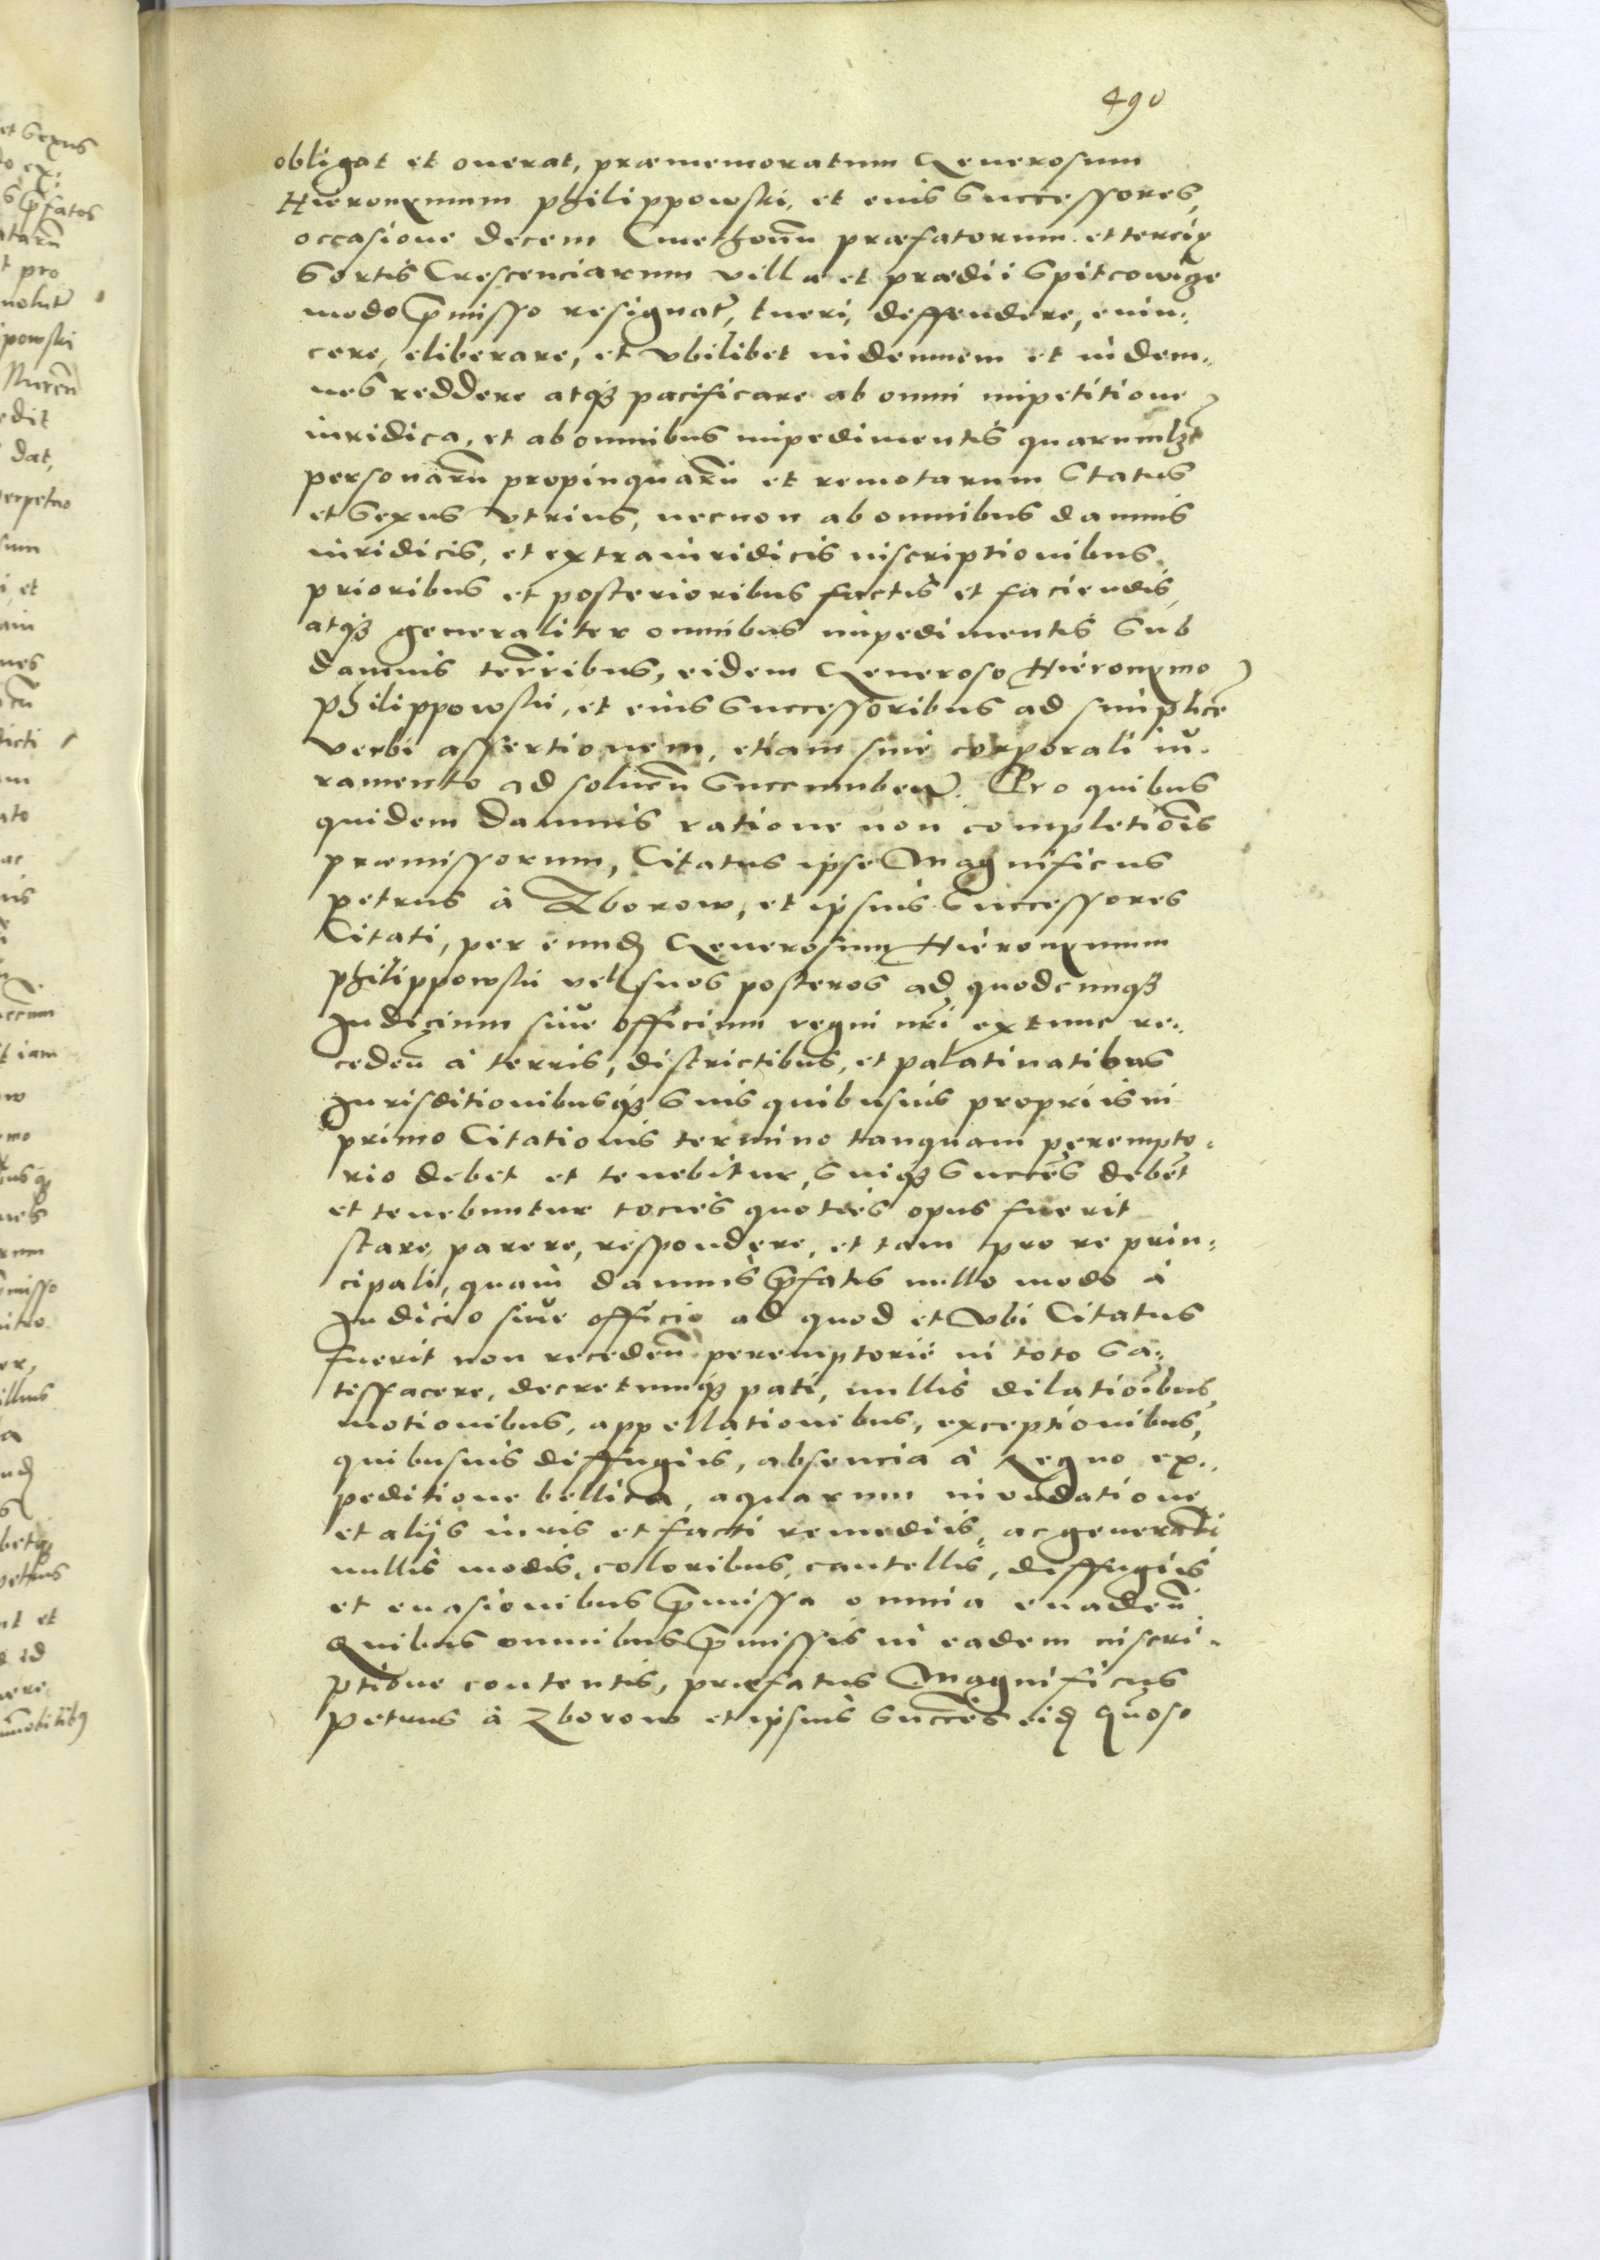 490
obligat et onerat, præmemoratum Generosum
Hieronymum philippowski, et eius Successores,
occasione decem Cmethonum præfatorum et terciæ
Sortis Crescenciarum villæ et prædii Spitcowicze
modo p̄misso resignat̃, tueri, deffendere, euin⸗
cere, eliberare, et vbilibet indemnem et indem⸗
nes reddere atq3 pacificare ab omni impetitione
iuridica, et ab omnibus impedimentis quarumlz̃t
personarũ propinquarũ et remotarum Status
et Sexus vtrius, necnon ab omnibus damnis
iuridicis, et extraiuridicis inscriptionibus
prioribus et posterioribus factis et faciendis,
atq3 generaliter omnibus impedimentis Sub
damnis ter̃ribus, eidem Generoso Hieronymo
Philippowski, et eius Successoribus ad simplicẽ
verbi assertionem, etiam sine corporali iu⸗
ramento ad soluen̄ Succumbeñ. Pro quibus
quidem Damnis ratione non completiõis
præmissorum, Citatus ipse Magnificus
petrus à Zborow, et ipsius Successores
Citati, per eund̃ Generosum Hieronymum
philippowski vel suos posteros ad quodcunq3
Judicium siue officium regni nr̃i extunc re⸗
ceden̄ à terris, districtibus, et palatinatibus
Jurisditionibusq3 Suis quibusuis propriis in
primo Citationis termino tanquam perempto⸗
rio debet et tenebitur, Suiq3 Succẽs debẽt
et tenebuntur tocies quoties opus fuerit
stare, parere, respondere, et tam pro re prin⸗
cipali, quam damnis p̄fatis nullo modo à
Judicio siue officio ad quod et vbi Citatus
fuerit non receden̄ peremptorie in toto Sa⸗
tisfacere, decretumq3 pati, nullis dilatiõibus,
motionibus, appellationibus, exceptionibus,
quibusuis diffugiis, absencia à Regno ex⸗
peditione bellica, aquarum inundatione
et aliis iuris et facti remediis, ac generali
nullis modis, coloribus, cautellis, diffugiis
et euasionibus p̄missa omnia euaden̄
Quibus omnibus p̄missis in eadem inscri⸗
ptione contentis, præfatus Magnificus
petrus à Zborow et ipsius Succẽs eid̃ g̃noso